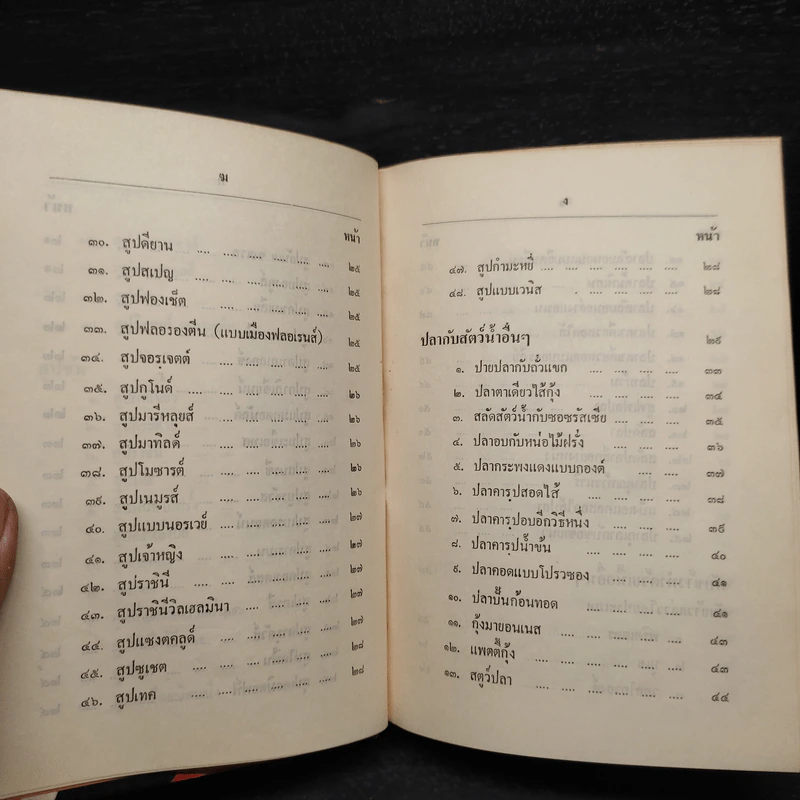 ฆ
หน้า
๓๐. สูปดียาน .... .... .... .... .... .... ๒๕
๓๑. สูปสเปญ .... .... .... .... .... ๒๕
๓๒. สูปฟองเช็ต .... .... .... .... .... ๒๕
๓๓. สูปฟลอรองตีน (แบบเมืองฟลอเรนส์) ๒๕
๓๔. สูปจอรเจตต์ .... .... .... .... .... ๒๕
๓๕. สูปกูโนด์ .... .... .... .... .... ๒๖
๓๖. สูปมารีหลุยส์ .... .... .... .... .... ๒๖
๓๗. สูปมาทิลด์ .... .... .... .... .... ๒๖
๓๘. สูปโมซารต์ .... .... .... .... .... ๒๖
๓๙. สูปเนมูรส์ .... .... .... .... .... ๒๖
๔๐. สูปแบบนอรเวย์ .... .... .... .... ๒๗
๔๑. สูปเจ้าหญิง .... .... .... .... .... ๒๗
๔๒. สูปราชินี .... .... .... .... .... ๒๗
๔๓. สูปราชินีวิลเฮลมินา .... .... .... .... ๒๗
๔๔. สูปแซงตคลูด์ .... .... .... .... .... ๒๗
๔๕. สูปซูเชต .... .... .... .... .... ๒๘
๔๖. สูปเทค .... .... .... .... .... .... ๒๘
ง
หน้า
๔๗. สูปกำมะหยี่ .... .... .... .... .... .... ๒๘
๔๘. สูปแบบเวนิส .... .... .... .... .... ๒๘
ปลากับสัตว์น้ำอื่นๆ .... .... .... .... .... ๒๙
๑. ปายปลากับถั่วแขก .... .... .... .... ๓๓
๒. ปลาตาเดียวไส้กุ้ง .... .... .... .... ๓๔
๓. สลัดสัตว์น้ำกับซอซรัสเซีย .... .... .... ๓๕
๔. ปลาอบกับหน่อไม้ฝรั่ง .... .... .... .... ๓๖
๕. ปลากระพงแดงแบบกองต์ .... .... .... ๓๗
๖. ปลาคารุปสอดไส้ .... .... .... .... ๓๘
๗. ปลาคารุปอบอีกวิธีหนึ่ง .... .... .... ๓๙
๘. ปลาคารุปน้ำข้น .... .... .... .... ๔๐
๙. ปลาคอดแบบโปรวซอง .... .... .... ๔๑
๑๐. ปลาปั้นก้อนทอด .... .... .... .... ๔๑
๑๑. กุ้งมายอนเนส .... .... .... .... .... ๔๓
๑๒. แพตตี้กุ้ง .... .... .... .... .... ๔๓
๑๓. สตูว์ปลา .... .... .... .... .... .... ๔๔